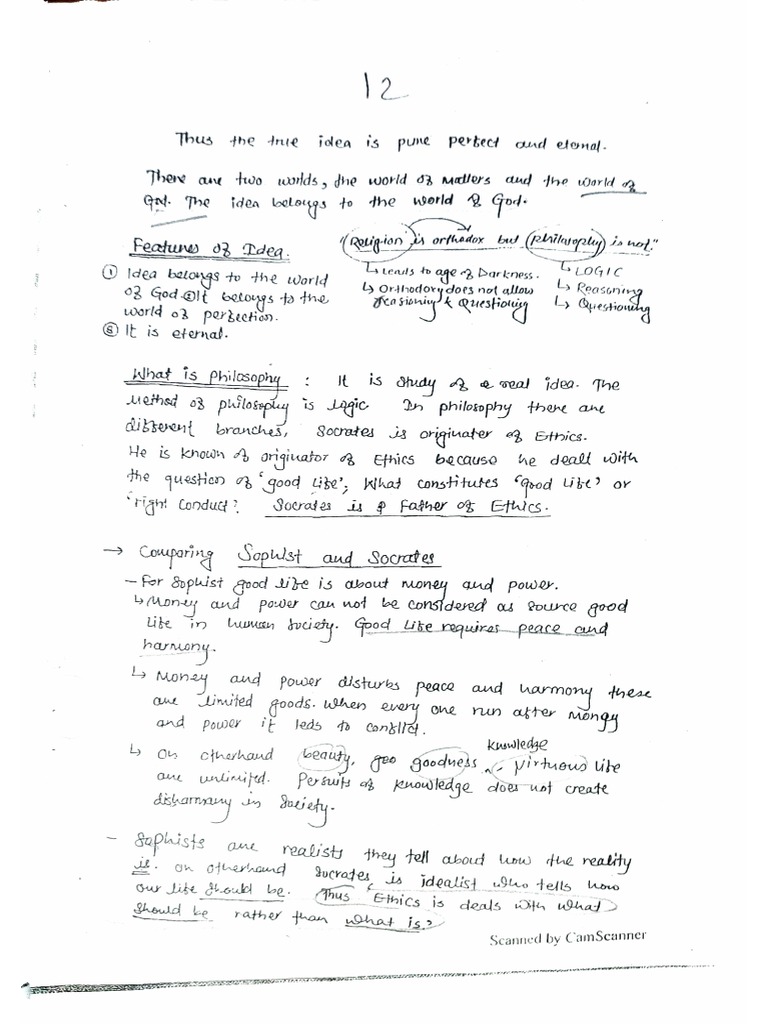 12
Thus the true idea is pure perfect and eternal.
There are two worlds, the world of Matters and the world of
God. The idea belongs to the world of God.
Features of Idea.
① Idea belongs to the world
of God. ② It belongs to the
world of perfection.
③ It is eternal.
"Religion is orthodox but philosophy is not."
↳ Leads to age of Darkness.
↳ Orthodoxy does not allow
reasioning & Questioning
↳ LOGIC
↳ Reasoning
↳ Questioning
What is Philosophy : It is study of a real idea. The
Method of philosophy is logic In philosophy there are
different branches, Socrates is originater of Ethics.
He is known of originator of Ethics because he deall with
the question of 'good Life'; What constitutes 'good Life' or
'right Conduct? Socrates is Father of Ethics.
→ Comparing Sophist and Socrates
- For Sophist good life is about money and power.
↳ Money and power can not be considered as source good
life in human society. Good Life requires peace and
harmony.
↳ Money and power disturbs peace and harmony these
are limited goods. When every one run after money
and power it leds to conflict.
↳ On otherhand beauty, goodness, knowledge virtuous life
are unlimited. Persuits of knowledge does not create
disharmony in Society.
- Sophists are realists they tell about how the reality
is. on otherhand Socrates is idealist who tells how
our life should be. Thus Ethics is deals with what
should be rather than what is?
Scanned by CamScanner